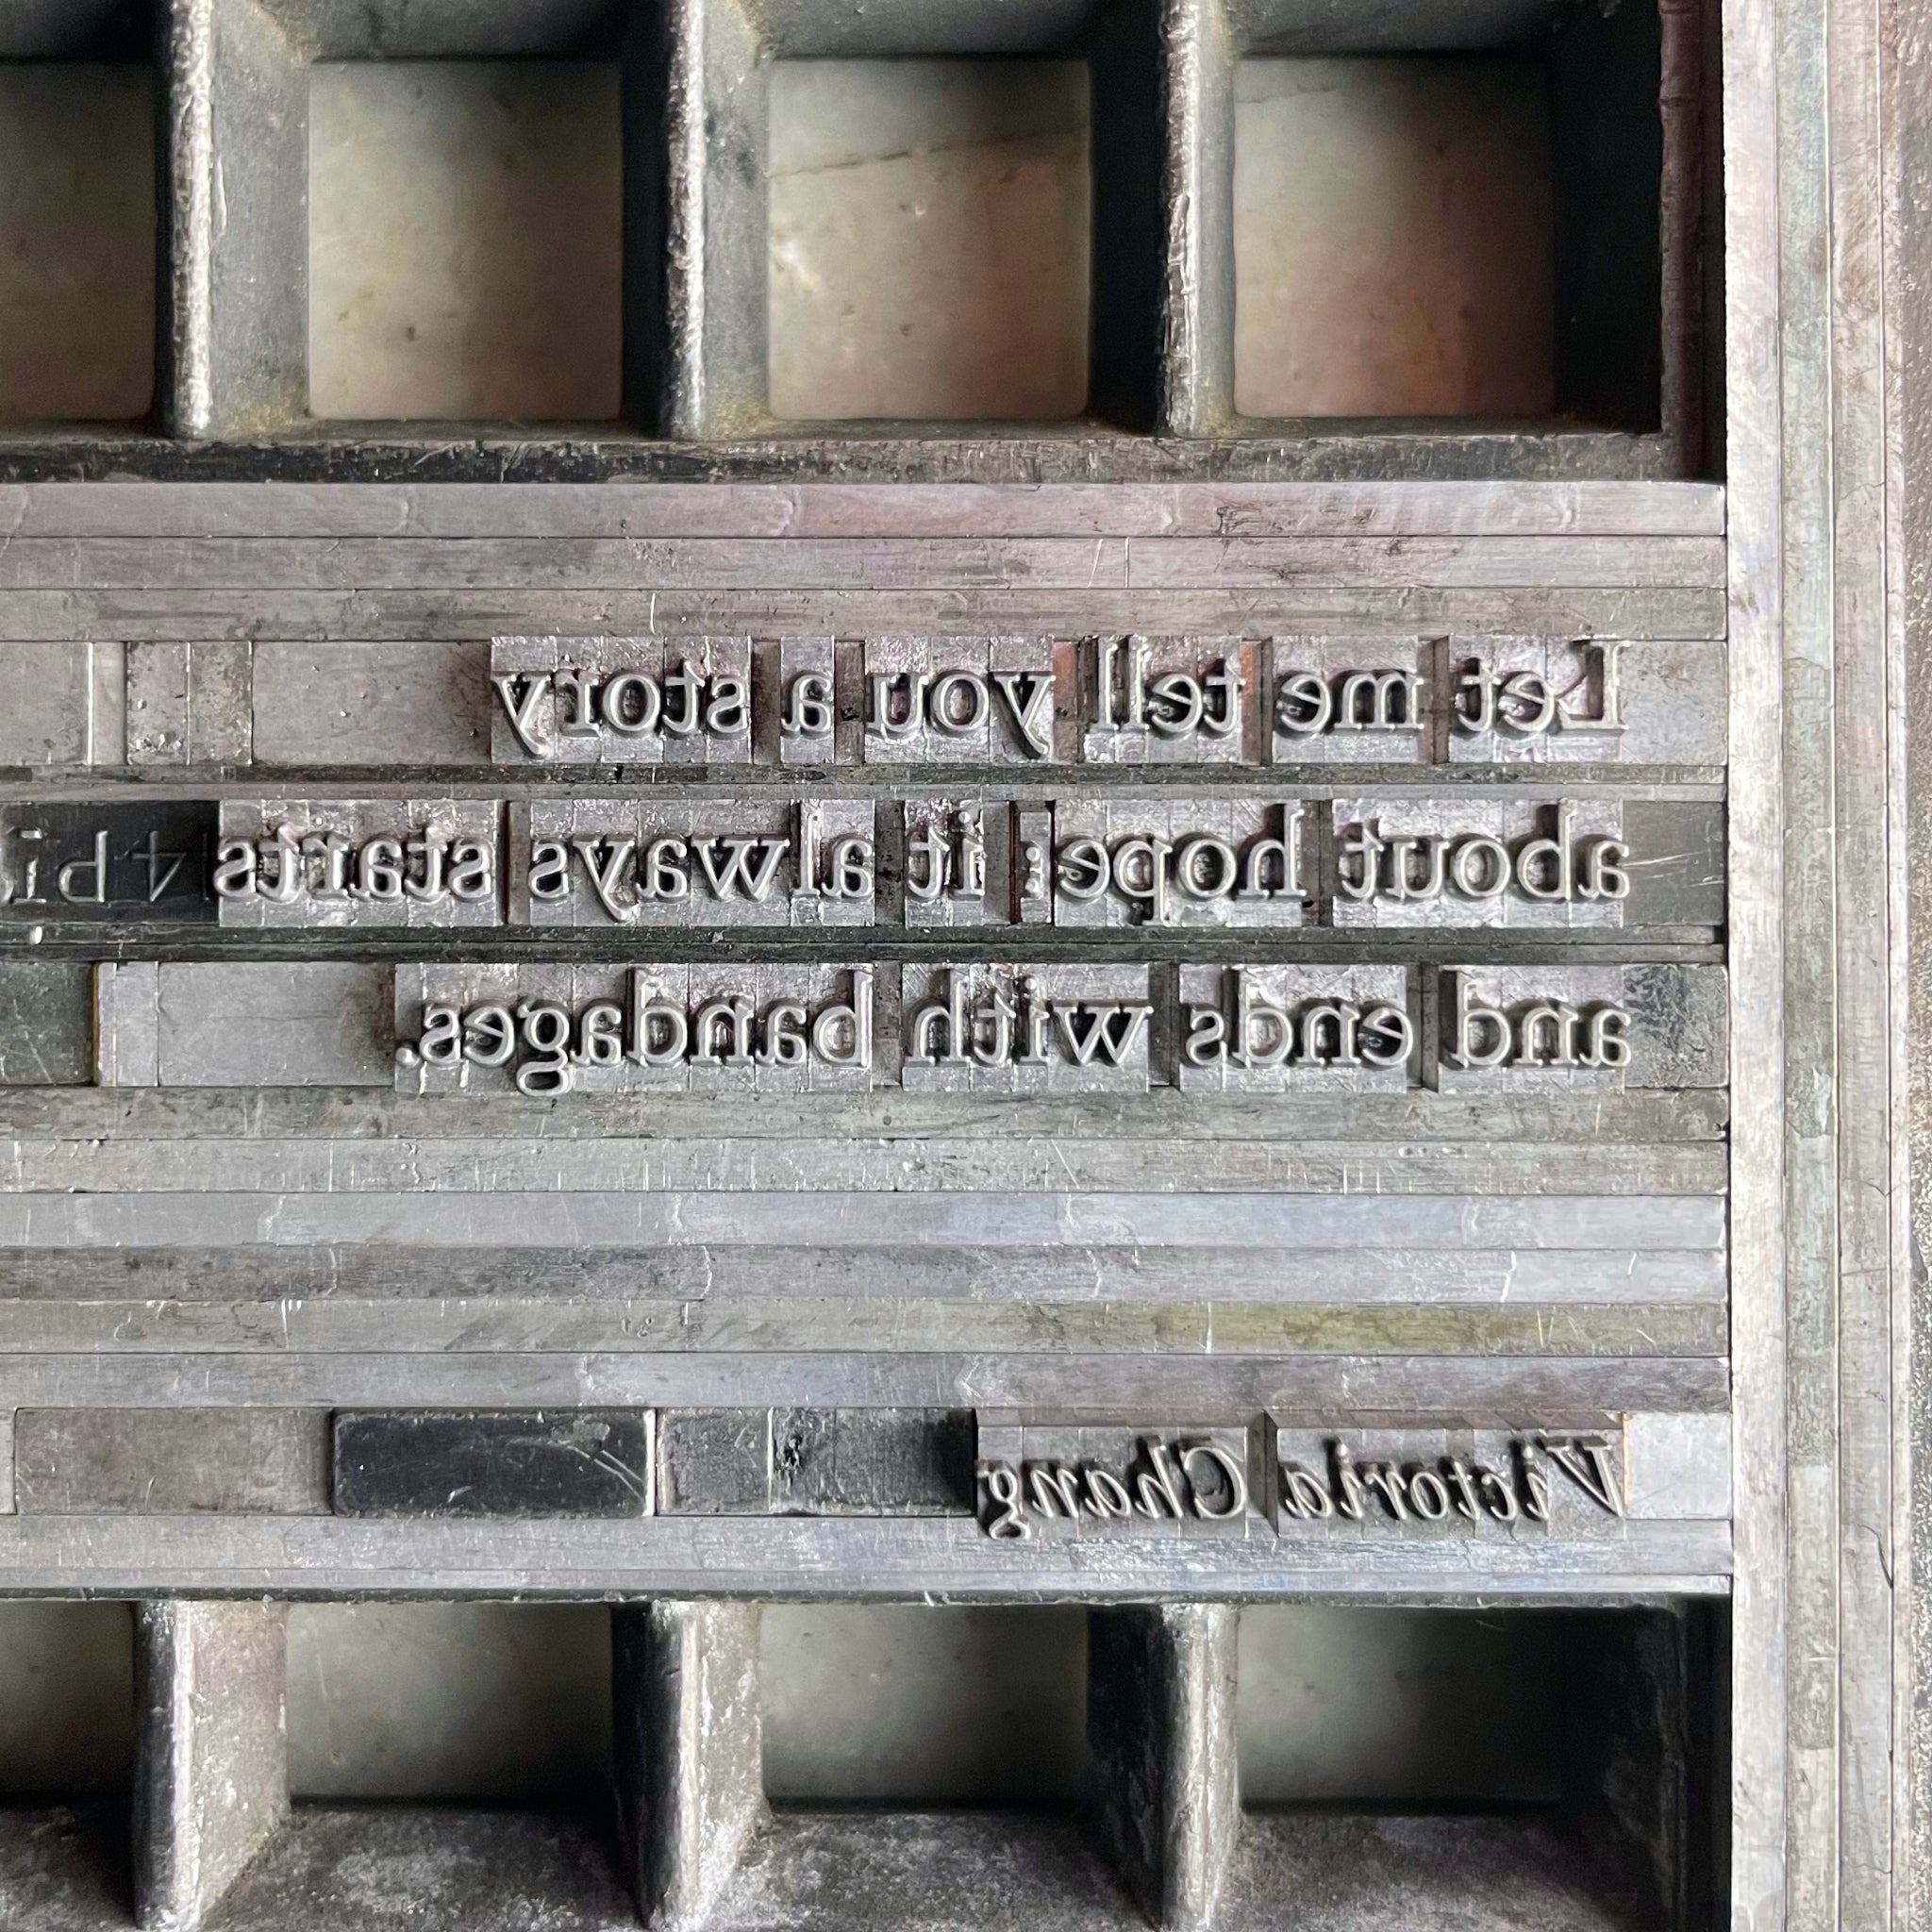 Let me tell you a story
about hope: it always starts
and ends with bandages.
Victoria Chang